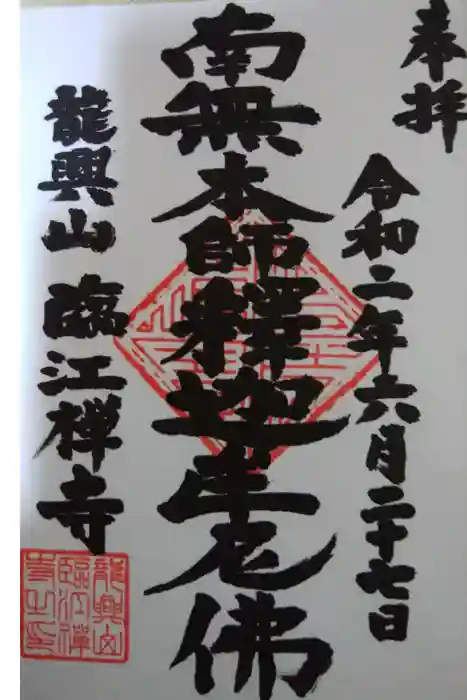 奉拝
令和二年六月二十七日
南無本師釋迦牟尼佛
龍興山 臨江禅寺
龍興山
臨江禅
寺之印